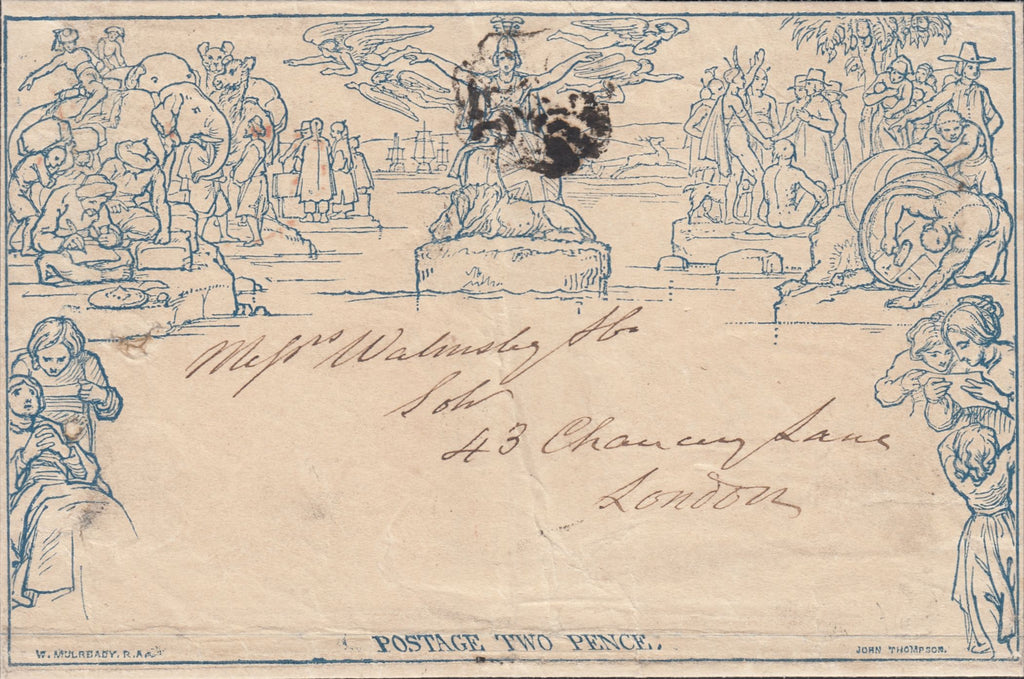 Messrs Walmsley &co
Solr
43 Chancery Lane
London
POSTAGE TWO PENCE.
W. MULREADY. R.A.
JOHN THOMPSON.